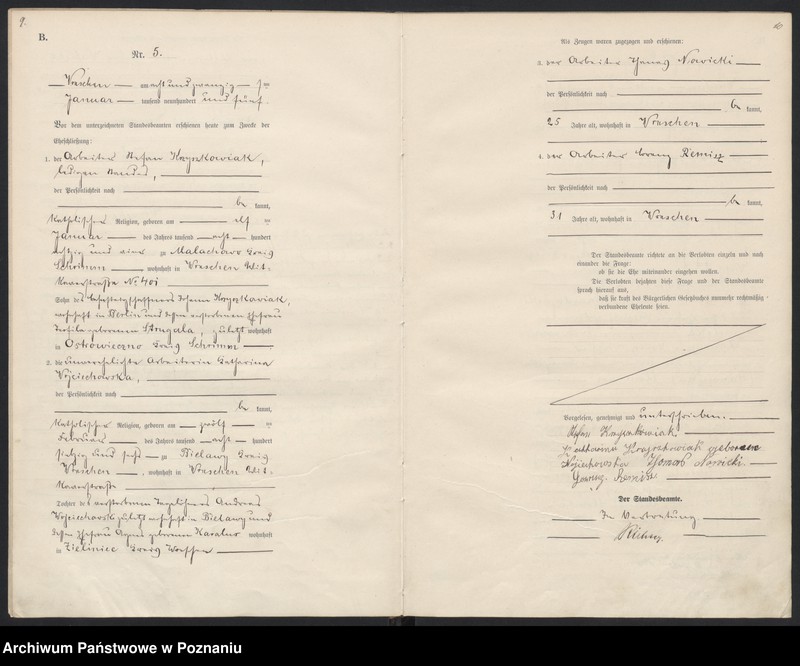 9.
B.
Nr. 5.
Wreschen am acht und zwanzig ten
Januar tausend neunhundert und fünf.
Vor dem unterzeichneten Standesbeamten erschienen heute zum Zwecke der
Eheschließung:
1. der Arbeiter Stefan Krzyszkowiak,
ledigen Standes,
der Persönlichkeit nach
be kannt,
katholischer Religion, geboren am elf ten
Januar des Jahres tausend acht hundert
achtzig und zu Malachowo Kreis
Schrimm wohnhaft in Wreschen Wit-
kowerstraße No 401
Sohn des Johann Krzyszkowiak,
wohnhaft in Berlin und dessen verstorbenen Ehefrau
geborenen Strugala, zuletzt wohnhaft
in Ostrowieczno Kreis Schrimm
2. die unverehelichte Arbeiterin Katharina
Wojciechowska,
der Persönlichkeit nach
be kannt,
katholischer Religion, geboren am zwölf ten
Februar des Jahres tausend acht hundert
siebzig und zu Bielawy Kreis
Wreschen, wohnhaft in Wreschen Wit-
kowerstraße
Tochter des verstorbenen Taglöhners Andreas
Wojciechowski zuletzt wohnhaft in Bielawy und
dessen Ehefrau Agnes geborenen wohnhaft
in Zieliniec Kreis Wreschen
10
Als Zeugen waren zugezogen und erschienen:
3. der Arbeiter Nowicki
der Persönlichkeit nach
be kannt,
25 Jahre alt, wohnhaft in Wreschen
4. der Arbeiter Remisz
der Persönlichkeit nach
be kannt,
31 Jahre alt, wohnhaft in Wreschen
Der Standesbeamte richtete an die Verlobten einzeln und nach
einander die Frage:
ob sie die Ehe miteinander eingehen wollen.
Die Verlobten bejahten diese Frage und der Standesbeamte
sprach hierauf aus,
daß sie kraft des Bürgerlichen Gesetzbuches nunmehr rechtmäßig
verbundene Eheleute seien.
Vorgelesen, genehmigt und unterschrieben.
Stefan Krzyszkowiak
Krzyszkowiak geborene
Wojciechowska Nowicki.
Remisz
Der Standesbeamte.
In Vertretung
Archiwum Państwowe w Poznaniu